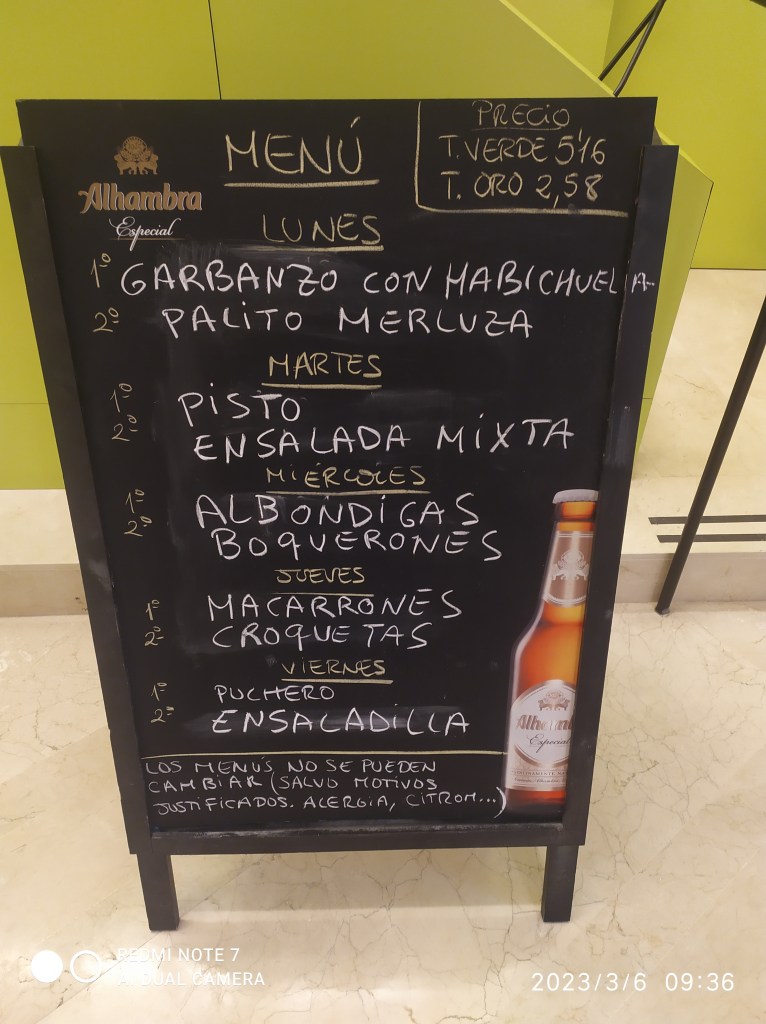 PRECIO
T. VERDE 5'16
T. ORO 2,58
MENÚ
Alhambra
Especial
LUNES
1º GARBANZO CON HABICHUELA
2º PALITO MERLUZA
MARTES
1º PISTO
2º ENSALADA MIXTA
MIÉRCOLES
1º ALBONDIGAS
2º BOQUERONES
JUEVES
1º MACARRONES
2º CROQUETAS
VIERNES
1º PUCHERO
2º ENSALADILLA
LOS MENUS NO SE PUEDEN
CAMBIAR (SALVO MOTIVOS
JUSTIFICADOS. ALERGIA, CITROM...)
Alhambra
Especial
REDMI NOTE 7
AI DUAL CAMERA
2023/3/6 09:36